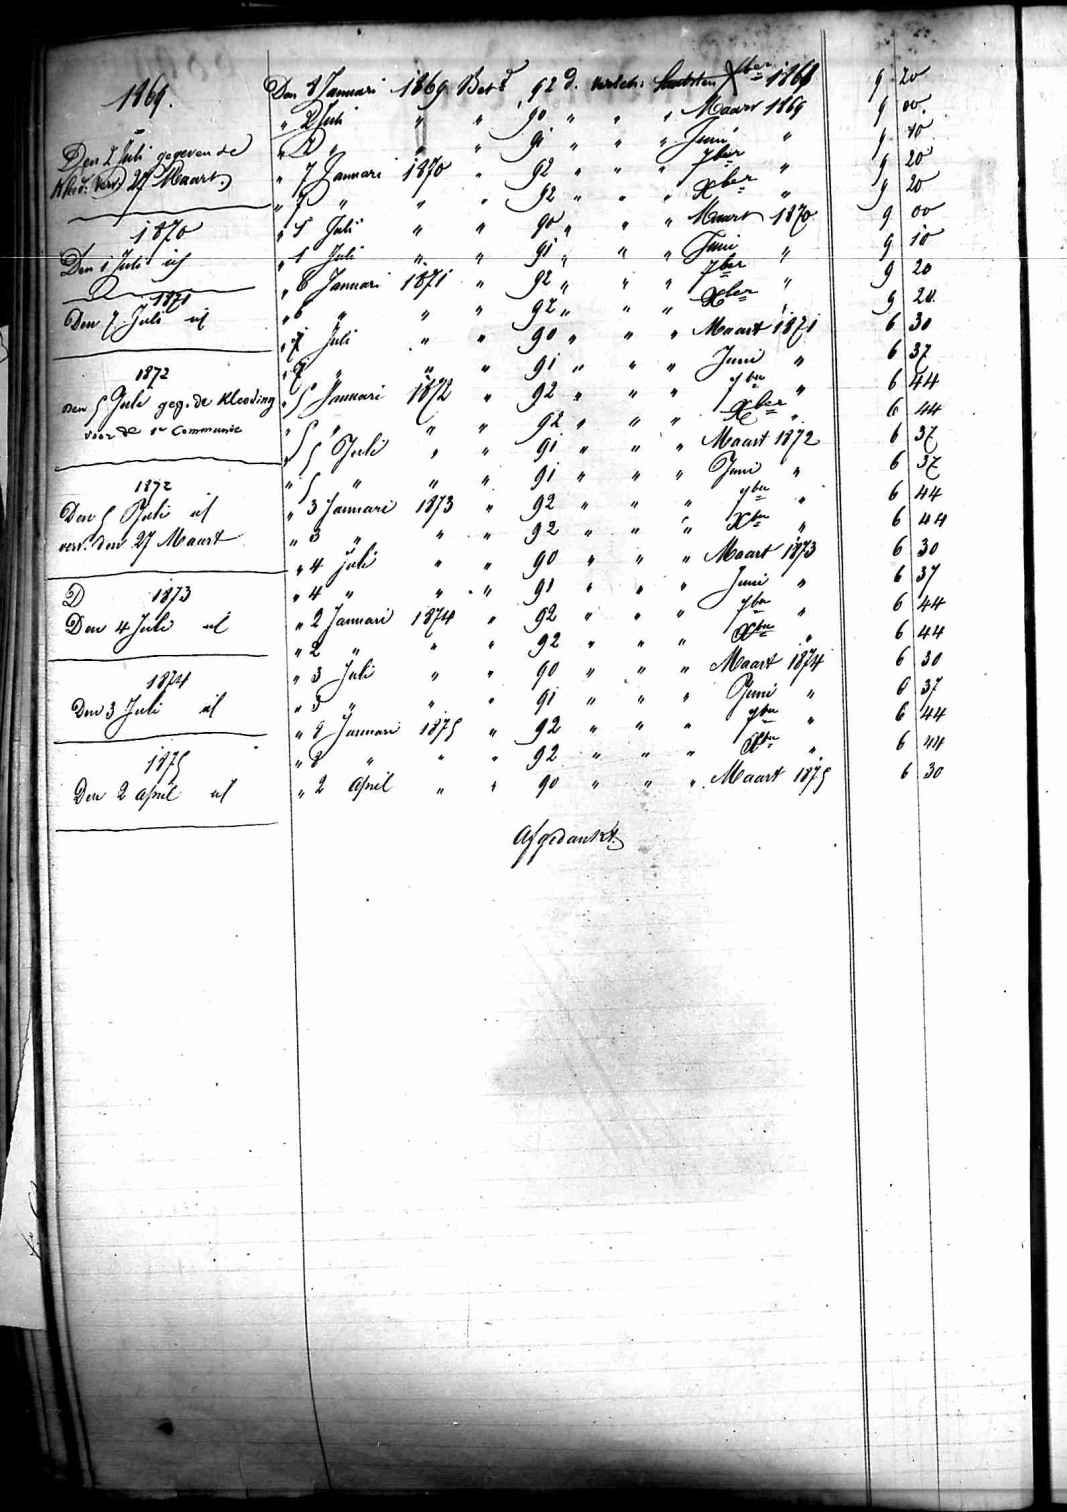 1869.
Den 2 Juli gegeven de
Kleed. verv. 27 Maart.
1870
Den 1 Juli id
1871
Den 7 Juli id
1872
den 5 Juli geg. de Kleeding
voor de 1e Communie
1872
Den 5 Juli id
verv. den 27 Maart
1873
Den 4 Juli id
1874
Den 3 Juli id
1875
Den 2 April id
Den 8 Januari 1869 Betd 92 d. Xber 1868 9 20
" 2 Juli " " 90 " " " Maart 1869 9 00
" 2 " " " 91 " " " Juni " 9 10
" 7 Januari 1870 " 92 " " " 7ber " 9 20
" 7 " " " 92 " " " Xber " 9 20
" 1 Juli " " 90 " " " Maart 1870 9 00
" 1 Juli " " 91 " " " Juni " 9 10
" 6 Januari 1871 " 92 " " " 7ber " 9 20
" 6 " " " 92 " " " Xber " 9 20
" 7 Juli " " 90 " " " Maart 1871 6 30
" 7 " " " 91 " " " Juni " 6 37
" 5 Januari 1872 " 92 " " " 7ber " 6 44
" 5 " " " 92 " " " Xber " 6 44
" 5 Juli " " 91 " " " Maart 1872 6 37
" 5 " " " 91 " " " Juni " 6 37
" 3 Januari 1873 " 92 " " " 7ber " 6 44
" 3 " " " 92 " " " Xber " 6 44
" 4 Juli " " 90 " " " Maart 1873 6 30
" 4 " " " 91 " " " Juni " 6 37
" 2 Januari 1874 " 92 " " " 7ber " 6 44
" 2 " " " 92 " " " Xber " 6 44
" 3 Juli " " 90 " " " Maart 1874 6 30
" 3 " " " 91 " " " Juni " 6 37
" 8 Januari 1875 " 92 " " " 7ber " 6 44
" 8 " " " 92 " " " Xber " 6 44
" 2 April " " 90 " " " Maart 1875 6 30
Afgedankt.